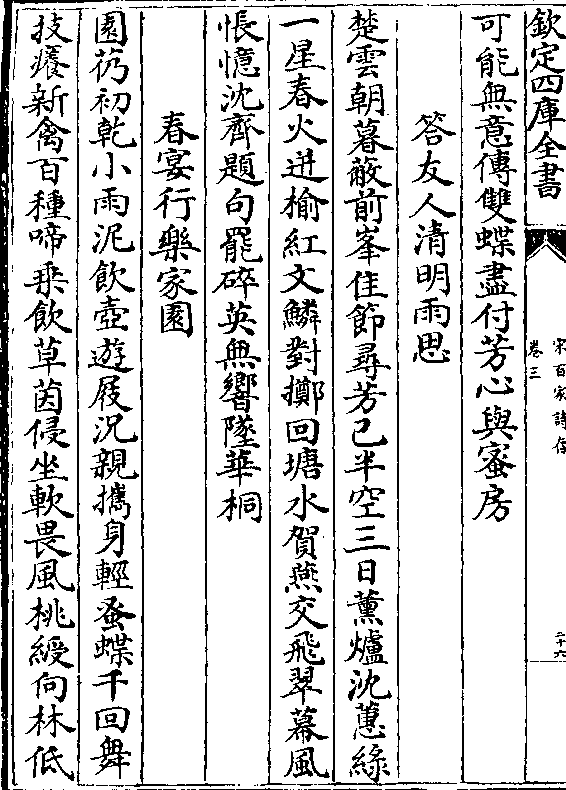 欽定四庫全書
宋百家詩存
卷三
二十六
可能無意傳雙蝶盡付芳心與蜜房
答友人清明雨思
楚雲朝暮蔽前峯佳節尋芳已半空三日薰爐沈蕙綠
一星春火迸榆紅文鱗對擲回塘水賀燕交飛翠幕風
悵憶沈齊題句罷碎英無響墜華桐
春宴行樂家園
園芿初乾小雨泥飲壺遊屐況親攜身輕蚤蝶千回舞
技癢新禽百種啼乗飲草茵侵坐軟畏風桃綬向林低